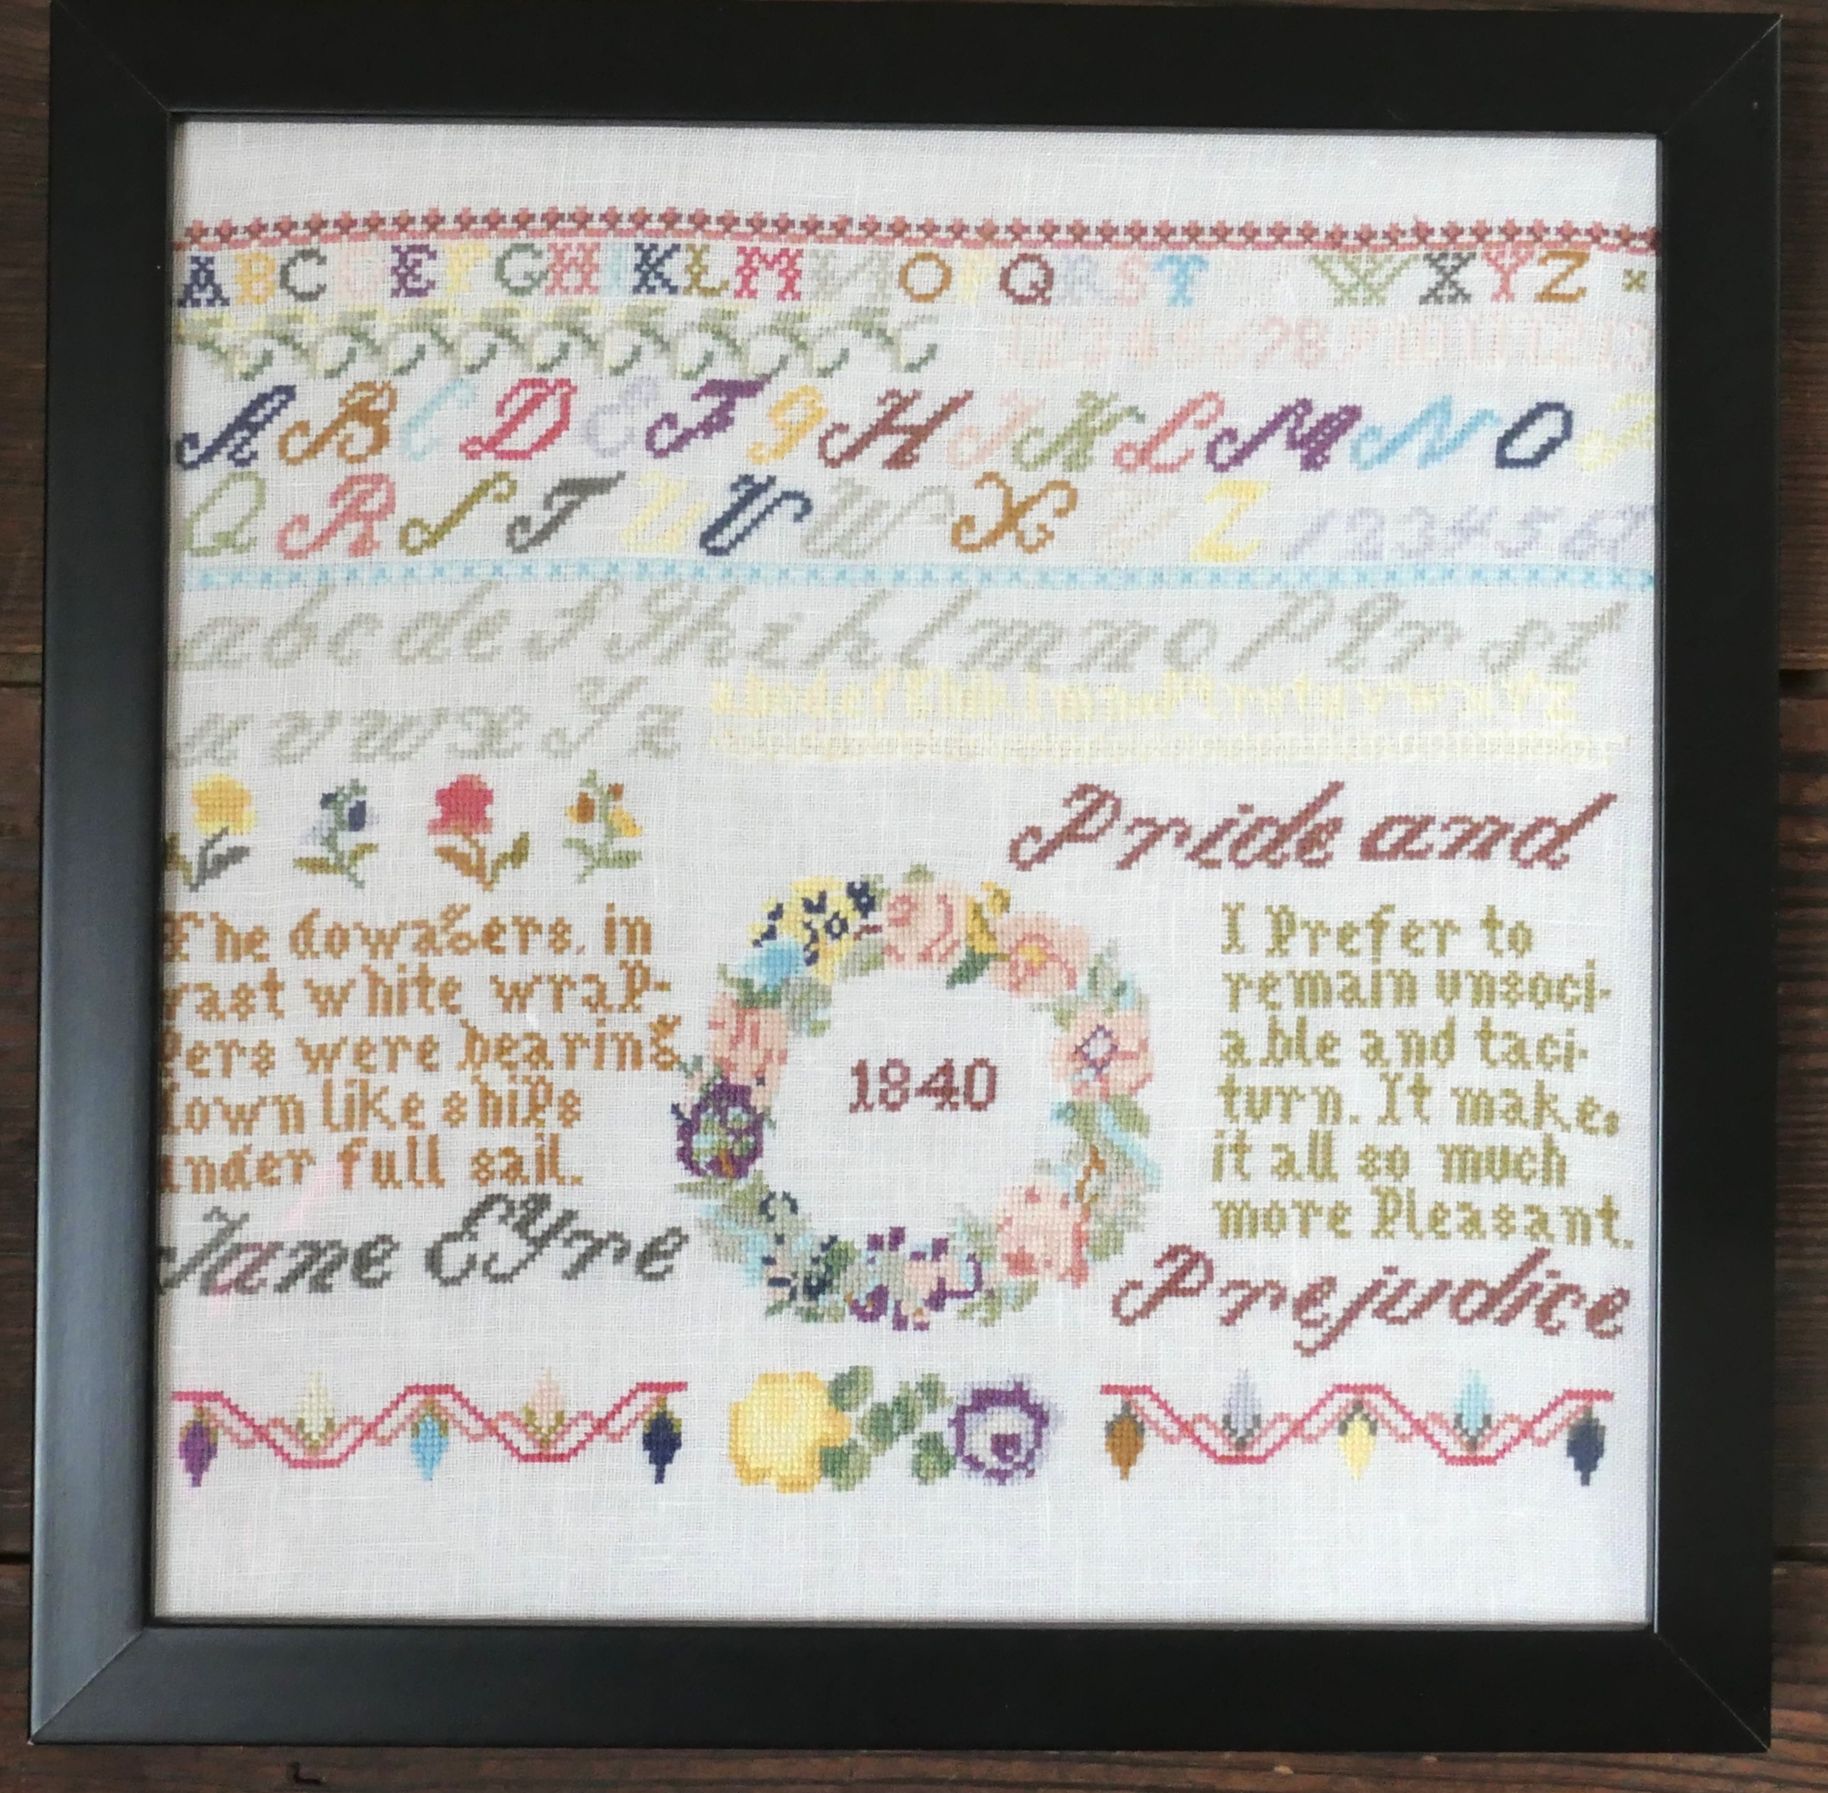 A B C D E F G H I K L M N O P Q R S T W X Y Z
1 2 3 4 5 6 7 8 9 10 11 12 13
A B C D E F G H J K L M N O P
Q R S T U V W X Y Z 1 2 3 4 5 6 7
a b c d e f g h i k l m n o p q r s t
u v w x y z
a b c d e f g h i k l m n o p q r s t u v w x y z
Pride and
The dowagers, in
vast white wrap-
pers were bearing
down like ships
under full sail.
Jane Eyre
1840
I Prefer to
remain unsoci-
able and taci-
turn. It makes
it all so much
more Pleasant.
Prejudice